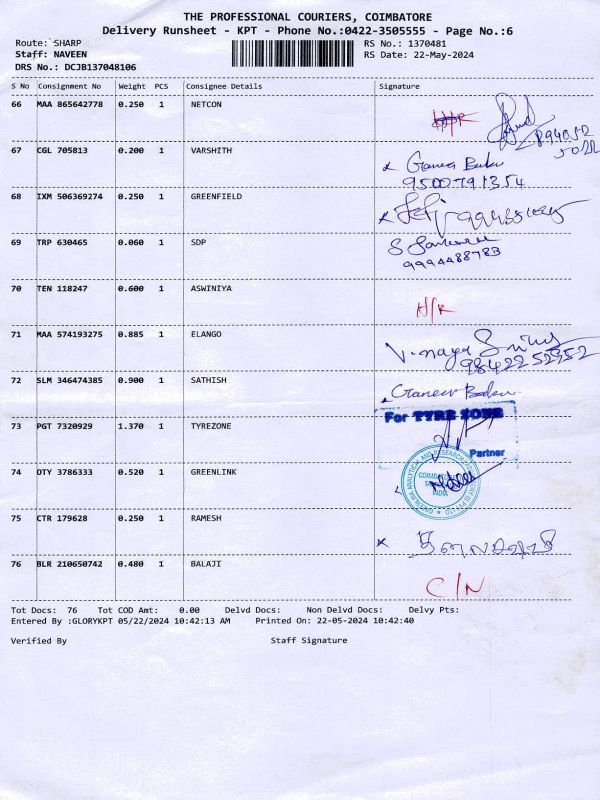 THE PROFESSIONAL COURIERS, COIMBATORE
Delivery Runsheet - KPT - Phone No.:0422-3505555 - Page No.:6
Route: SHARP
RS No.: 1370481
Staff: NAVEEN
RS Date: 22-May-2024
DRS No.: DCJB137048106
S No Consignment No Weight PCS Consignee Details Signature
66 MAA 865642778 0.250 1 NETCON
67 CGL 705813 0.200 1 VARSHITH
9500791354
68 IXM 506369274 0.250 1 GREENFIELD
69 TRP 630465 0.060 1 SDP
9994488783
70 TEN 118247 0.600 1 ASWINIYA
71 MAA 574193275 0.885 1 ELANGO
9842252952
72 SLM 346474385 0.900 1 SATHISH
73 PGT 7320929 1.370 1 TYREZONE
For TYRE ZONE
Partner
74 OTY 3786333 0.520 1 GREENLINK
INDIA
75 CTR 179628 0.250 1 RAMESH
76 BLR 210650742 0.480 1 BALAJI
C/N
Tot Docs: 76 Tot COD Amt: 0.00 Delvd Docs: Non Delvd Docs: Delvy Pts:
Entered By :GLORYKPT 05/22/2024 10:42:13 AM Printed On: 22-05-2024 10:42:40
Verified By Staff Signature